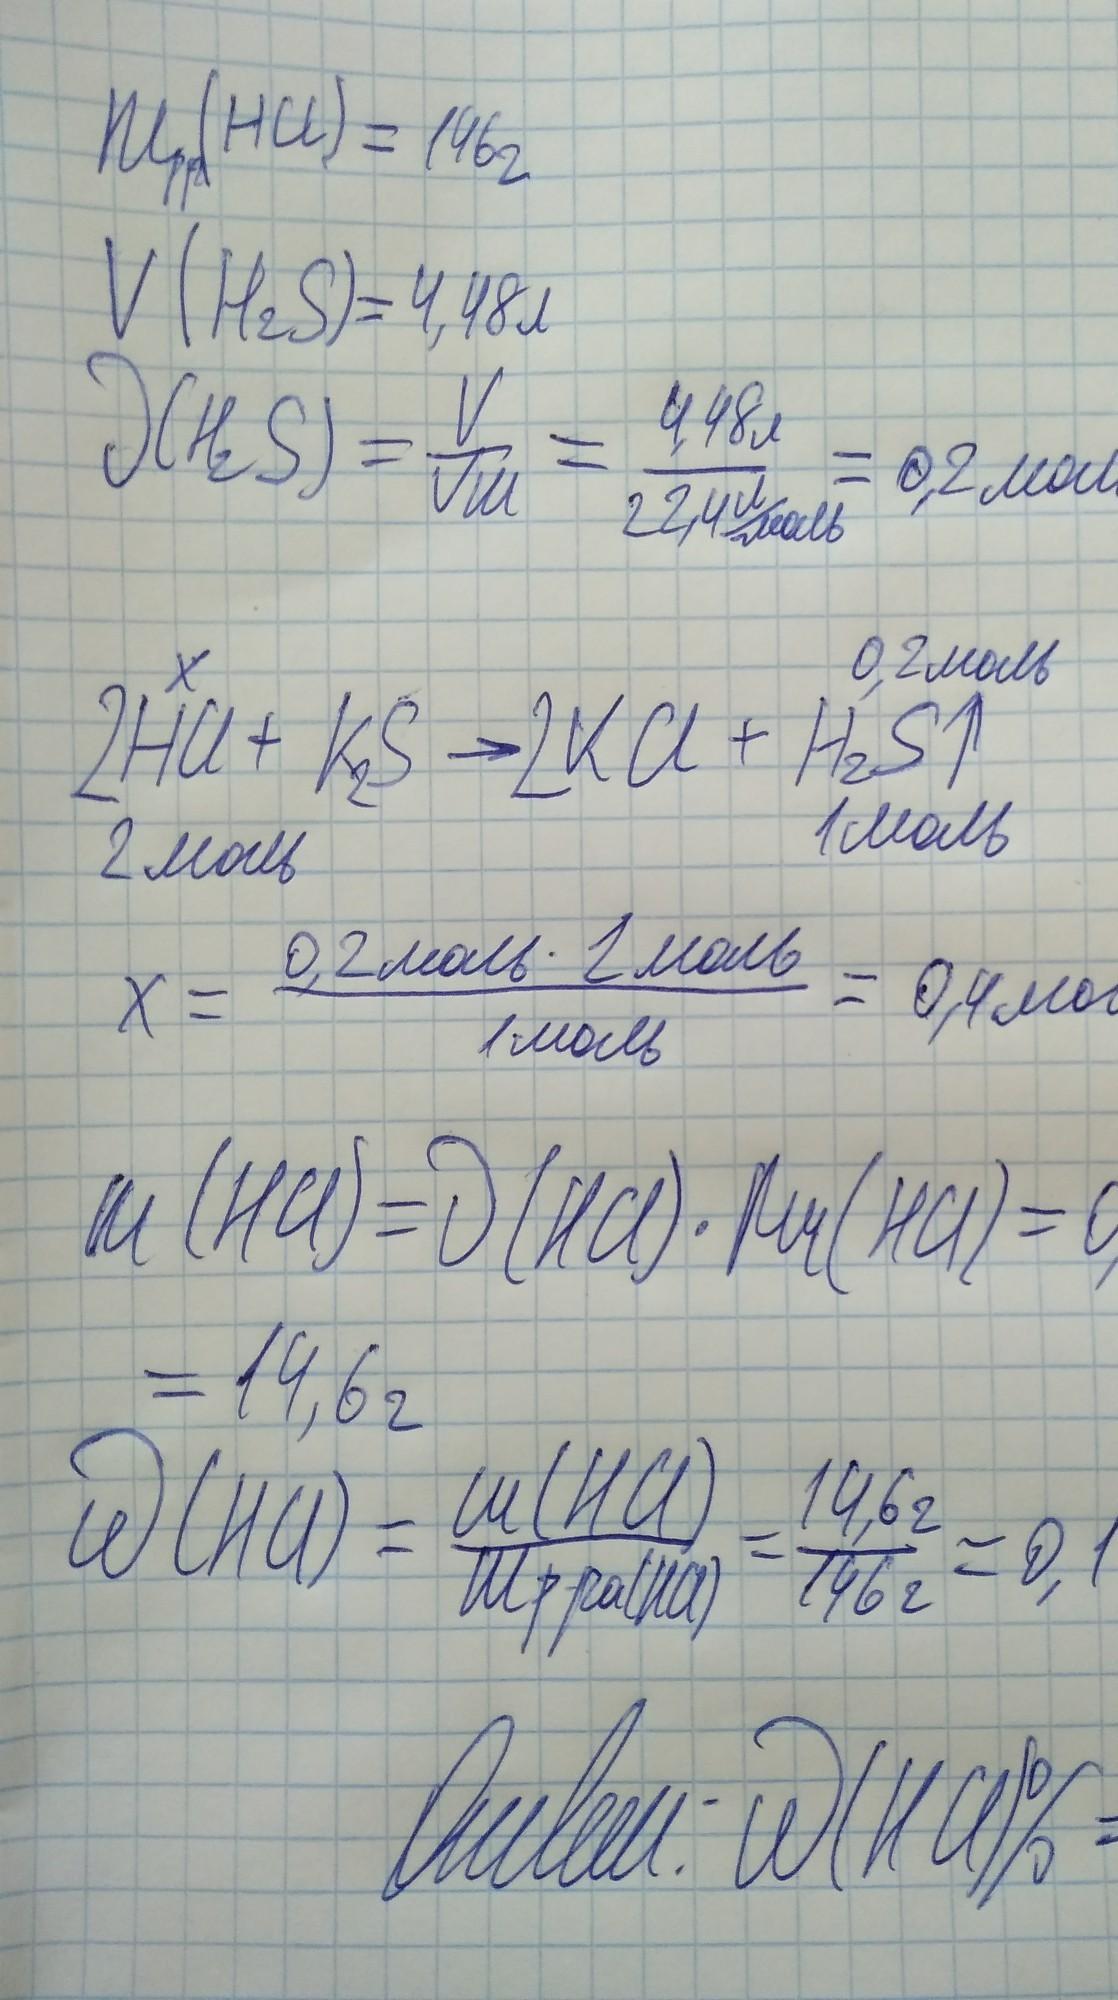 m р-ра (HCl) = 146г
V (H₂S) = 4,48л
ν(H₂S) = V/Vm = 4,48л / 22,4 л/моль = 0,2 мол
x 0,2моль
2HCl + K₂S → 2KCl + H₂S↑
2 моль 1моль
x = 0,2 моль · 2 моль / 1 моль = 0,4 мо
m (HCl) = ν(HCl) · Mr(HCl) = 0,
= 14,6г
ω(HCl) = m(HCl) / m р-ра(HCl) = 14,6г / 146г = 0,1
Ответ: ω(HCl)% =